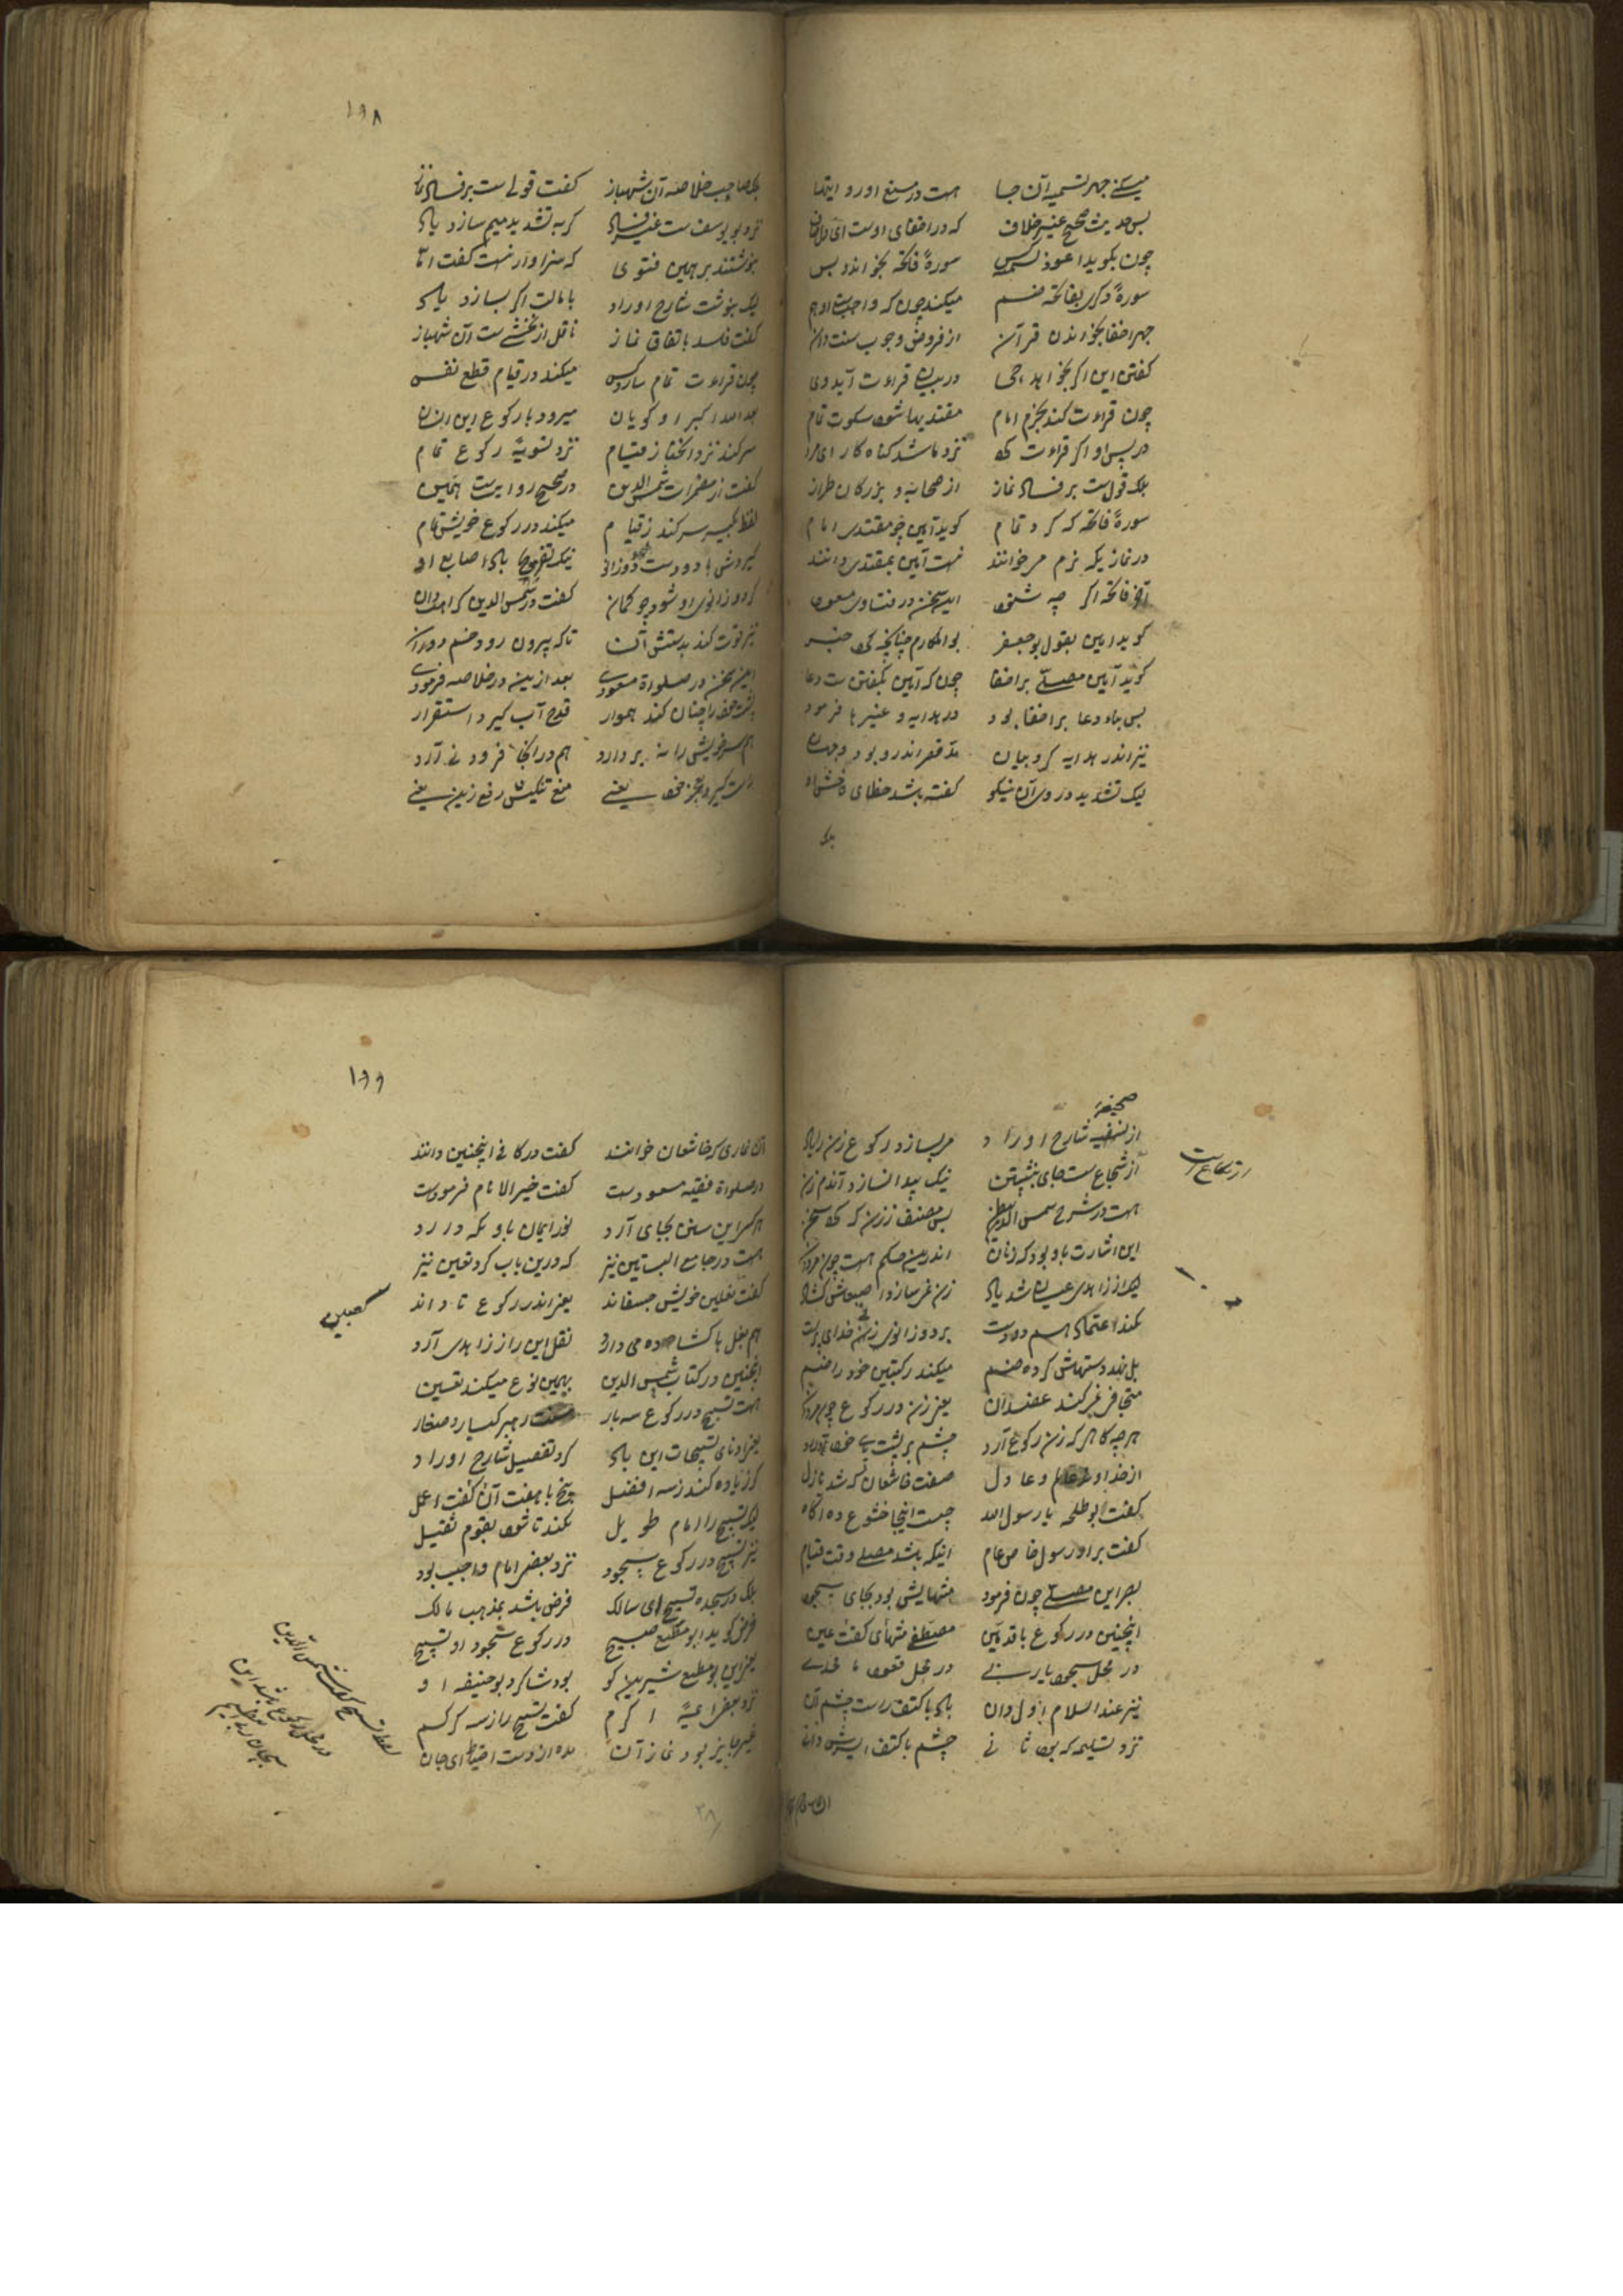 میکنی جهر تسمیه آن جا هست در منع او رو ایتها
بس حدیث صحیح غیر خلاف که در اخفای اوست ای
چون بگوید اعوذ سورهٔ فاتحه بخواند بس
سورهٔ دیگر بفاتحه ضم میکند چون که واجبست او هم
جهر اخفا بخواندن قرآن از فروض وجوب سنت دان
گفتن این اگر بخواهد جی در بیان قراءت آید وی
چون قراءت کند بجزم امام مقتدیها شود سکوت تمام
در پس او اگر قراءت کرد نزد ما شد گناه کار ای مرد
بلک قولست بر فساد نماز از صحابه و بزرگان طراز
سورهٔ فاتحه که کرد تمام گوید آمین چو مقتدی امام
در نماز یکه نرم مر خوانند نیست آمین بمقتدی دانند
فاتحه اگر چه شنود این سخن در فتاوی مسعود
گوید آمین بقول بو جعفر بو المکارم چنانچه کرد خبر
گوید آمین مصلی بر اخفا چون که آمین بگفتن ست دعا
بس بناء دعا بر اخفا بود در هدایه و غیرها فرمود
نیز اندر هدایه کرد بیان مد قصر اندرو بود وجهان
لیک تشدید در وی آن نیکو گفته باشد خطای فاحش او
بلک
۱۹۸
بلک صاحب خلاصه آن شهباز گفت قولی ست بر فساد نماز
نزد بو یوسف ست غیر فساد گر به تشدید میم سازد یاد
بنوشتند بر همین فتوی که سزاوار نیست گفت اما
لیک بنوشت شارح اوراد با مالت اگر بسازد یاد
گفت فاسد باتفاق نماز ناقل از بخشی ست آن شهباز
چون قراءت تمام سازد کس میکند در قیام قطع نفس
بعد الله اکبر او گویان میرود با رکوع این انسان
سر کند نزد انحنا ز قیام نزد تسویهٔ رکوع تمام
گفت از مضمرات شمس الدین در صحیح روایت همین
لفظ تکبیر سر کند ز قیام میکند در رکوع خویش تمام
گیردش با دو دست دو زانو نیک تفریج باد اصابع او
گر دو زانوی او شود چو کمان گفت در شمس الدین کراهت دان
نیز قوت کند بدستش آن تا که بیرون رود خم دو
این سخن در صلوة مسعودی بعد ازینه در خلاصه فرمودی
پشت خود را چنان کند هموار قدح آب گیرد استقرار
هم سر خویش را نه بر دارد هم در انجا فرود نی آرد
راست گیرد بعجز خود یعنی منع تنکیس رفع زین یعنی
صحیفهٔ
از شارح اوراد مر بسازد رکوع زن
از شجاع ست جای بنشستن نیک پیدا نسازد آندم زن
هست در شرح شمس الدین پس مصنف ززن که کرد سخن
این اشارت باو بود که زنان اندرین حکم هست چون مردان
لیک از زاهدی عیان شد یاد زن نمر سازد اصبعاش کشاد
نکند اعتماد هم دو دست بر دو زانوی زن خدای پرست
بل نهد دستهاش کرده ضم میکند رکبتین خود را خم
متجافی نمر کند عضدان یعنی زن در رکوع چون مردان
هر چه گاهی که زن رکوع آرد چشم بر پشت پای خود دارد
از خداوند عالم و عادل صفت خاشعان که شد نازل
گفت ابو طلحه یا رسول الله چیست اینجا خشوع ده آگاه
گفت بر او رسول خاص و عام اینکه باشد مصلی وقت قیام
بصر این مصلی چون فرمود منتهایش بود بجای سجود
اینچنین در رکوع با قدمین مصطفی منتهای گفت عین
در محل سجود یا ربی در محل قعود تا
نیز عند السلام اول دان باد با کتف راست چشم آن
نزد تسلیمه که بود ثانی چشم با کتف ایسرش دانی
۱۹۹
گفت در کافی اینچنین دانند
در صلوة فقیه مسعودست گفت خیر الانام فرمودست
هر که این سنن بجای آرد نور ایمان باو نکه دارد
هست در جامع البساتین نیز که درین باب کرد تعین نیز
گفت نعلین خویش جسفاند یعنی اندر رکوع تا داند
هم بغل با کشاده می دارد نقل این را ز زاهدی آرد
اینچنین در کتاب شمس الدین بهمین نوع میکند تعیین
هست تسبیح در رکوع سه بار
یعنی ادنای تسبیحات این باد کرد تفصیل شارح اوراد
گر زیاده کند ز سه افضل پنج یا هفت آن گفت اعمل
لیک تسبیح را امام طویل نکند تا شود بقوم ثقیل
نیز تسبیح در رکوع سجود نزد بعضی امام واجب بود
بلک در سجده تسبیح ای سالک فرض باشد بمذهب مالک
فرض گوید ابو مطیع صبیح در رکوع سجود او تسبیح
یعنی این بو مطیع شیرین گو بود شاگرد بو حنیفه او
نزد بعضی ائمهٔ اکرم گفت تسبیح را ز سه گر کم
غیر جایز بود نماز آن مده از دست احتیاط ای جان
کعبین
۳۸